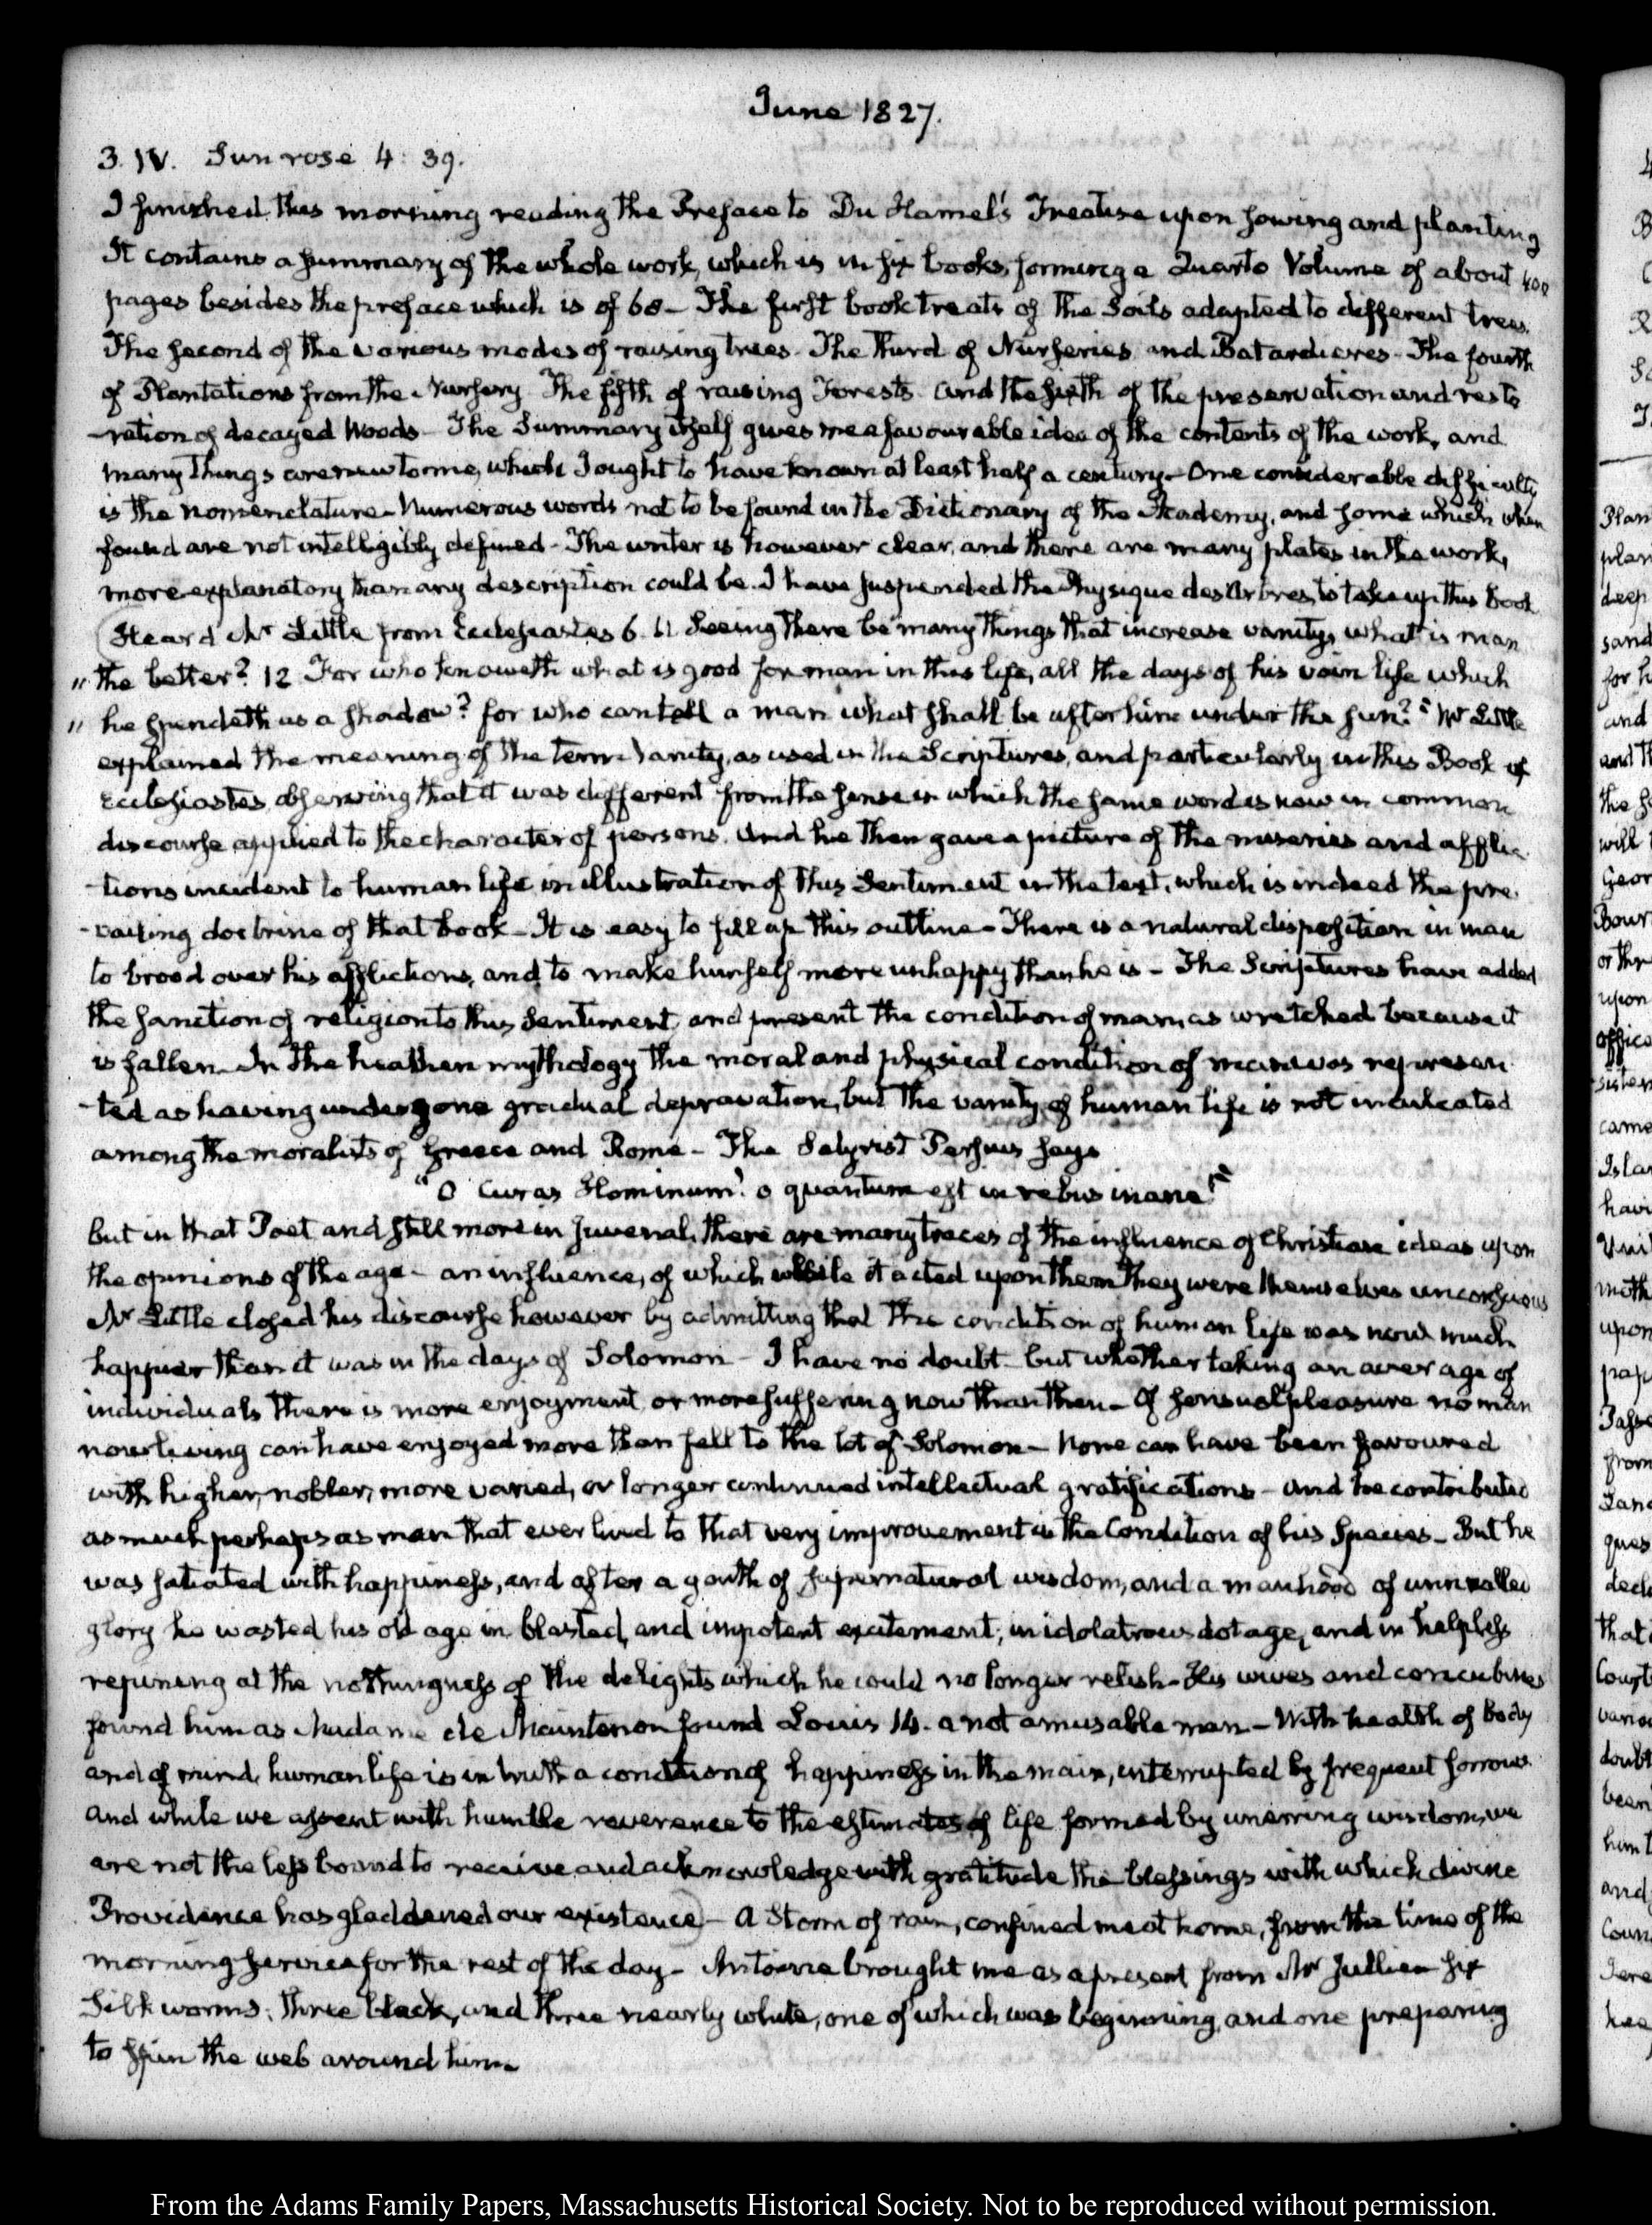 June 1827.
3. IV. Sun rose 4:39.
I finished this morning reading the Preface to Du Hamel's Treatise upon sowing and planting
It contains a summary of the whole work, which is in six books, forming a Quarto Volume of about 400
pages besides the preface which is of 60 — The first book treats of the Soils adapted to different trees.
The second of the various modes of raising trees — The third of Nurseries and Batardieres — The fourth
of Plantations from the Nursery The fifth of raising Forests and the sixth of the preservation and resto
-ration of decayed Woods — The Summary itself gives me a favourable idea of the contents of the work, and
many things are new to me, which I ought to have known at least half a century — One considerable difficulty
is the nomenclature — Numerous words not to be found in the Dictionary of the Academy, and some which when
found are not intelligibly defined — The writer is however clear, and there are many plates in the work,
more explanatory than any description could be. I have suspended the Physique des Arbres, to take up this book
(Heard Mr Little from Ecclesiastes 6. 11. Seeing there be many things that increase vanity, what is man
" the better? 12 For who knoweth what is good for man in this life, all the days of his vain life which
" he spendeth as a shadow? for who can tell a man what shall be after him under the sun?" Mr Little
explained the meaning of the term Vanity, as used in the Scriptures, and particularly in this Book of
Ecclesiastes, observing that it was different from the sense in which the same word is now in common
discourse applied to the character of persons. And he then gave a picture of the miseries and afflic
-tions incident to human life in illustration of this Sentiment in the text, which is indeed the pre
-vailing doctrine of that book — It is easy to fill up this outline — There is a natural disposition in man
to brood over his afflictions, and to make himself more unhappy than he is — The Scriptures have added
the sanction of religion to this Sentiment, and present the condition of man, as wretched because it
is fallen — In the heathen mythology the moral and physical condition of man was represen
-ted as having undergone gradual depravation, but the vanity of human life is not inculcated
among the moralists of Greece and Rome — The Satyrist Persius says
"O Curas Hominum! o quantum est in rebus inane!"
but in that Poet and still more in Juvenal, there are many traces of the influence of Christian ideas upon
the opinions of the age — an influence, of which while it acted upon them they were themselves unconscious
Mr Little closed his discourse however by admitting that the condition of human life was now much
happier than it was in the days of Solomon — I have no doubt — but whether taking an average of
individuals there is more enjoyment, or more suffering now than then — Of sensual pleasure no man
now living can have enjoyed more than fell to the lot of Solomon — None can have been favoured
with higher, nobler, more varied, or longer continued intellectual gratifications — and he contributed
as much perhaps as man that ever lived to that very improvement in the Condition of his Species — But he
was satiated with happiness, and after a youth of supernatural wisdom, and a manhood of unrivalled
glory he wasted his old age in blasted, and impotent excitement, in idolatrous dotage, and in helpless
repining at the nothingness of the delights which he could no longer relish — His wives and concubines
found him as Madame de Maintenon found Louis 14. a not amusable man — With health of body
and of mind, human life is in truth a condition of happiness in the main, interrupted by frequent sorrows
and while we assent with humble reverence to the estimates of life formed by unerring wisdom, we
are not the less bound to receive and acknowledge with gratitude the blessings with which divine
Providence has gladdened our existence) — A Storm of rain, confined me at home, from the time of the
morning service for the rest of the day — Antoine brought me as a present from Mr Jullien six
Silk worms; three black, and three nearly white, one of which was beginning, and one preparing
to spin the web around him —
From the Adams Family Papers, Massachusetts Historical Society. Not to be reproduced without permission.